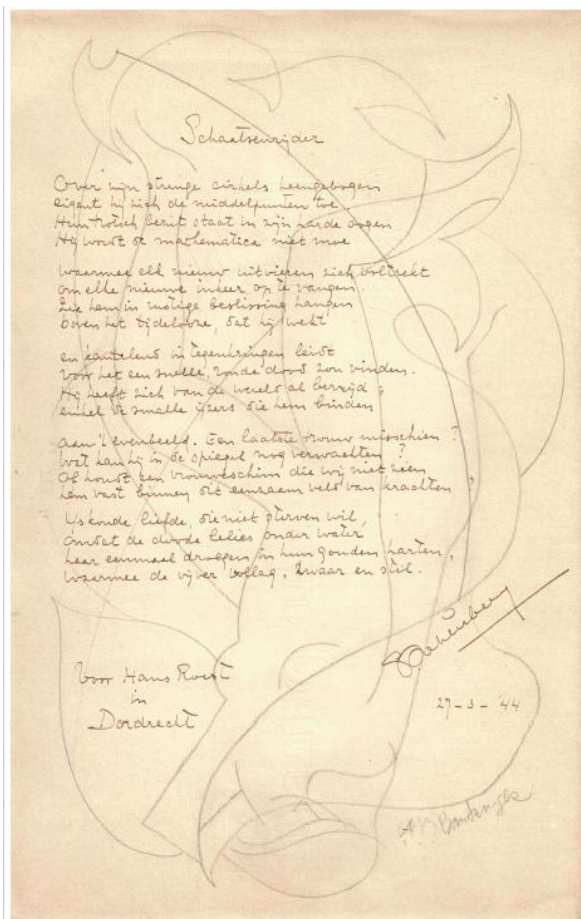 Schaatsenrijder
Over zijn strenge cirkels heengebogen
eigent hij zich de middelpunten toe
Hun trotsch bezit staat in zijn harde oogen
Hij wordt de mathematica niet moe
waarmee elk nieuw uitvieren zich voltrekt
om elke nieuwe inkeer op te vangen.
Zie hem in rustige beslissing hangen
boven het tijdelooze, dat hij wekt
en kantelend in tegenkringen leidt
voor het een snelle, ronde dood zou vinden.
Hij heeft zich van de wereld al bevrijd,
enkel de smalle ijzers die hem binden
aan 't evenbeeld. Een laatste trouw misschien?
Wat kan hij in de spiegel nog verwachten?
Of houdt een vrouweschim die wij niet zien
hem vast binnen dit eenzaam veld van krachten?
IJskoude liefde, die niet sterven wil,
omdat de doode lelies onder water
haar eenmaal droegen in hun gouden harten,
waarmee de vijver vollag, zwaar en stil.
Voor Hans Roest
in
Dordrecht
27-3-'44